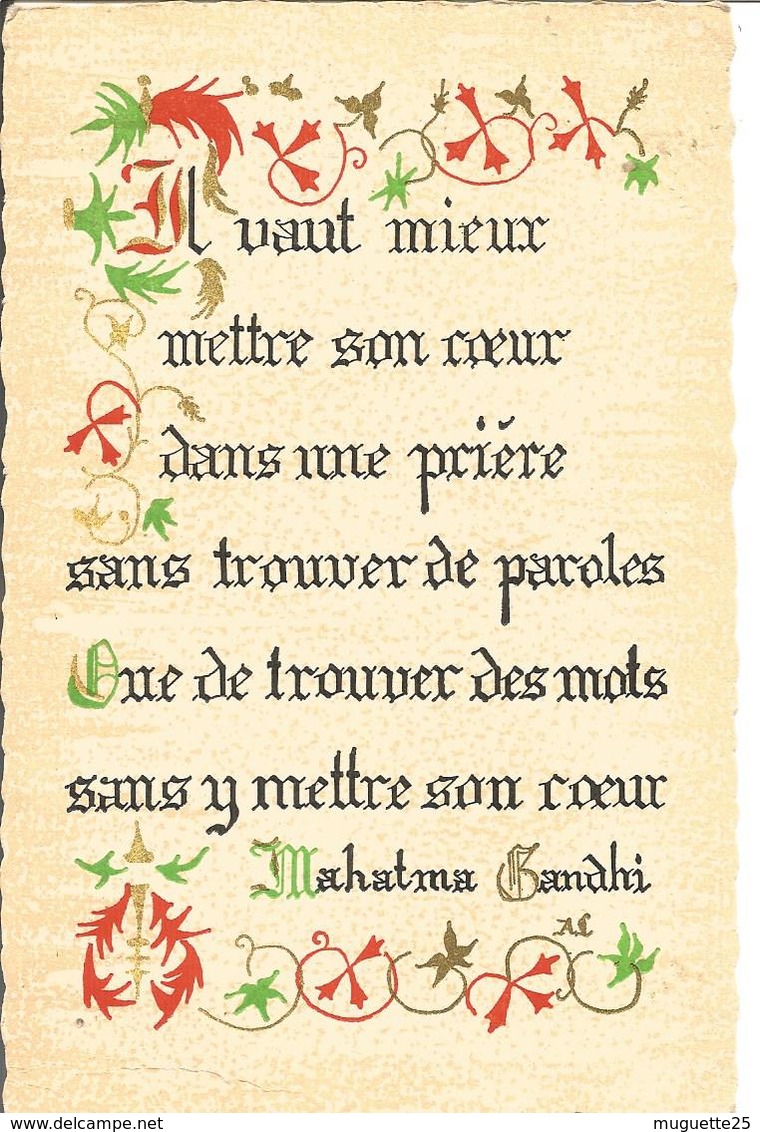 Il vaut mieux
mettre son cœur
dans une prière
sans trouver de paroles
Que de trouver des mots
sans y mettre son cœur
Mahatma Gandhi
A.L
www.delcampe.net
muguette25